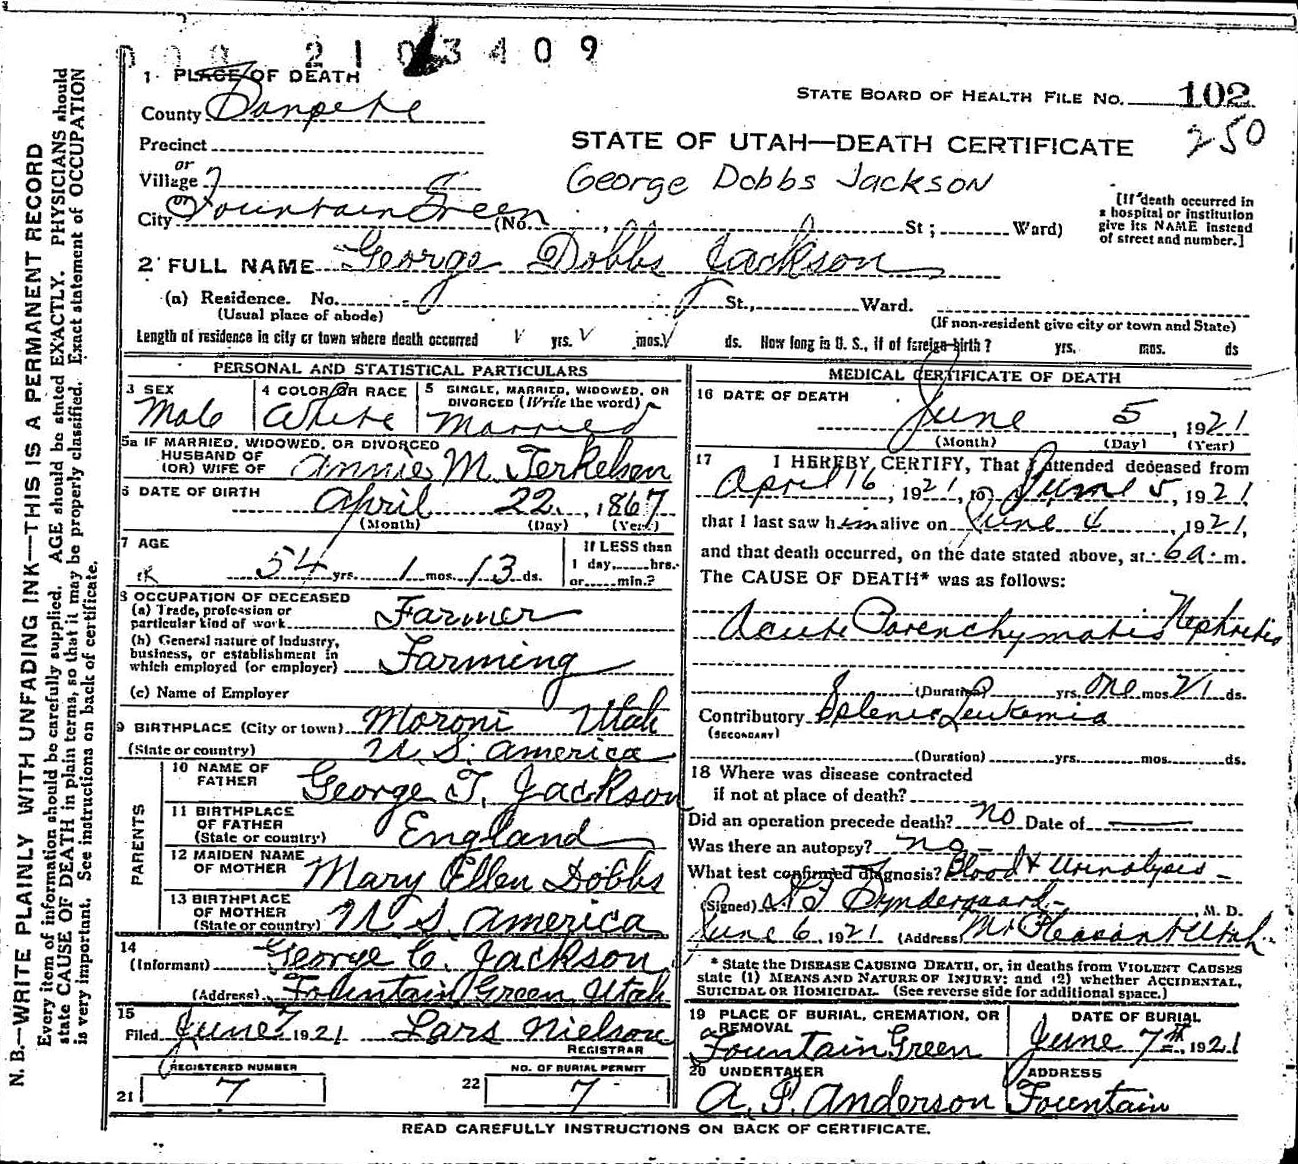 2103409
1 PLACE OF DEATH
County Sanpete
STATE BOARD OF HEALTH FILE NO. 102
250
Precinct
or
Village
or
City Fountain Green (No. , St; Ward)
STATE OF UTAH—DEATH CERTIFICATE
George Dobbs Jackson
[If death occurred in a hospital or institution give its NAME instead of street and number.]
2 FULL NAME George Dobbs Jackson
(a) Residence. No. St., Ward.
(Usual place of abode)
(If non-resident give city or town and State)
Length of residence in city or town where death occurred yrs. mos. ds. How long in U. S., if of foreign birth? yrs. mos. ds
PERSONAL AND STATISTICAL PARTICULARS
3 SEX
Male
4 COLOR OR RACE
White
5 SINGLE, MARRIED, WIDOWED, OR DIVORCED (Write the word)
Married
5a IF MARRIED, WIDOWED, OR DIVORCED
HUSBAND OF
(OR) WIFE OF Annie M. Terkelsen
6 DATE OF BIRTH April 22, 1867
(Month) (Day) (Year)
7 AGE
54 yrs. 1 mos. 13 ds.
If LESS than
1 day,......hrs.
or......min.?
8 OCCUPATION OF DECEASED
(a) Trade, profession or
particular kind of work Farmer
(b) General nature of Industry,
business, or establishment in
which employed (or employer) Farming
(c) Name of Employer
9 BIRTHPLACE (City or town) Moroni Utah
(State or country) U. S. America
PARENTS
10 NAME OF
FATHER George T. Jackson
11 BIRTHPLACE
OF FATHER
(State or country) England
12 MAIDEN NAME
OF MOTHER Mary Ellen Dobbs
13 BIRTHPLACE
OF MOTHER
(State or country) U S. America
14
(Informant) George C. Jackson
(Address) Fountain Green Utah
15
Filed June 7 1921 Lars Nielson
REGISTRAR
REGISTERED NUMBER
21 7
NO. OF BURIAL PERMIT
22 7
MEDICAL CERTIFICATE OF DEATH
16 DATE OF DEATH
June 5, 1921
(Month) (Day) (Year)
17 I HEREBY CERTIFY, That I attended deceased from
April 16, 1921, to June 5, 1921
that I last saw him alive on June 4, 1921,
and that death occurred, on the date stated above, at 6 a. m.
The CAUSE OF DEATH* was as follows:
Acute Parenchymatis Nephretis
(Duration) yrs. one mos. 21 ds.
Contributory Splenic Leukemia
(SECONDARY)
(Duration) yrs. mos. ds.
18 Where was disease contracted
if not at place of death?
Did an operation precede death? no Date of
Was there an autopsy? no
What test confirmed diagnosis? Blood & Urinalysis
(Signed) Syndergaard, M. D.
June 6, 1921 (Address) Mt Pleasant Utah
* State the DISEASE CAUSING DEATH, or, in deaths from VIOLENT CAUSES
state (1) MEANS AND NATURE OF INJURY; and (2) whether ACCIDENTAL,
SUICIDAL OR HOMICIDAL. (See reverse side for additional space.)
19 PLACE OF BURIAL, CREMATION, OR
REMOVAL
Fountain Green
DATE OF BURIAL
June 7th, 1921
20 UNDERTAKER
A. P. Anderson
ADDRESS
Fountain
READ CAREFULLY INSTRUCTIONS ON BACK OF CERTIFICATE.
N. B.—WRITE PLAINLY WITH UNFADING INK—THIS IS A PERMANENT RECORD
Every item of information should be carefully supplied. AGE should be stated EXACTLY. PHYSICIANS should
state CAUSE OF DEATH in plain terms, so that it may be properly classified. Exact statement of OCCUPATION
is very important. See instructions on back of certificate.